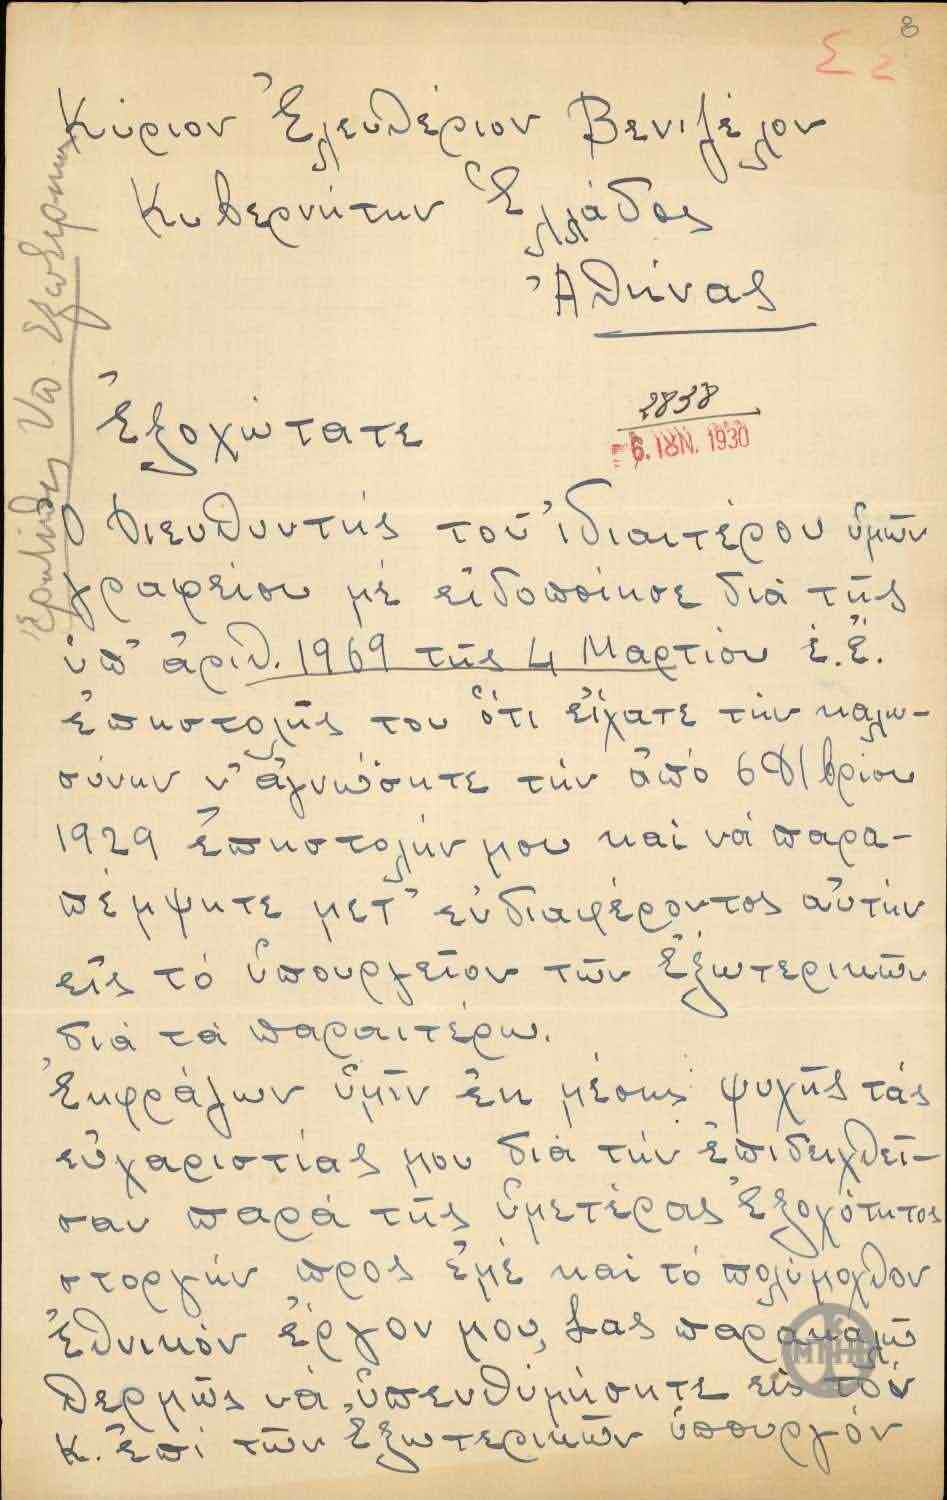 8
Σ 2
Κύριον Ἐλευθέριον Βενιζέλον
Κυβερνήτην Ἑλλάδος
Ἀθήνας
Ἐξοχώτατε
2838
6. ΙΟΥΝ. 1930
Ὁ Διευθυντής τοῦ ἰδιαιτέρου ὑμῶν
γραφείου μέ εἰδοποίησε διά τῆς
ὑπ' ἀριθ. 1969 τῆς 4 Μαρτίου ἐ.ἔ.
ἐπηστολῆς του ὅτι εἴχατε τήν καλω-
σύνην ν' ἀγνώσητε τήν ἀπό 6 Δ/βρίου
1929 ἐπηστολήν μου καί νά παρα-
πέμψητε μετ' ενδιαφέροντος αὐτήν
εἰς τό ὑπουργεῖον τῶν Ἐξωτερικῶν
διά τά παραιτέρω.
Ἐκφράζων ὑμῖν ἐκ μέσης ψυχῆς τάς
εὐχαριστίας μου διά τήν ἐπιδειχθεῖ-
σαν παρά τῆς ὑμετέρας Ἐξοχότητος
στοργήν προς ἐμέ καί τό πολύμοχθον
Ἐθνικόν ἔργον μου, Σας παρακαλῶ
θερμῶς νά ὑπενθυμήσητε εἰς τόν
κ. Ἐπί τῶν Ἐξωτερικῶν ὑπουργόν